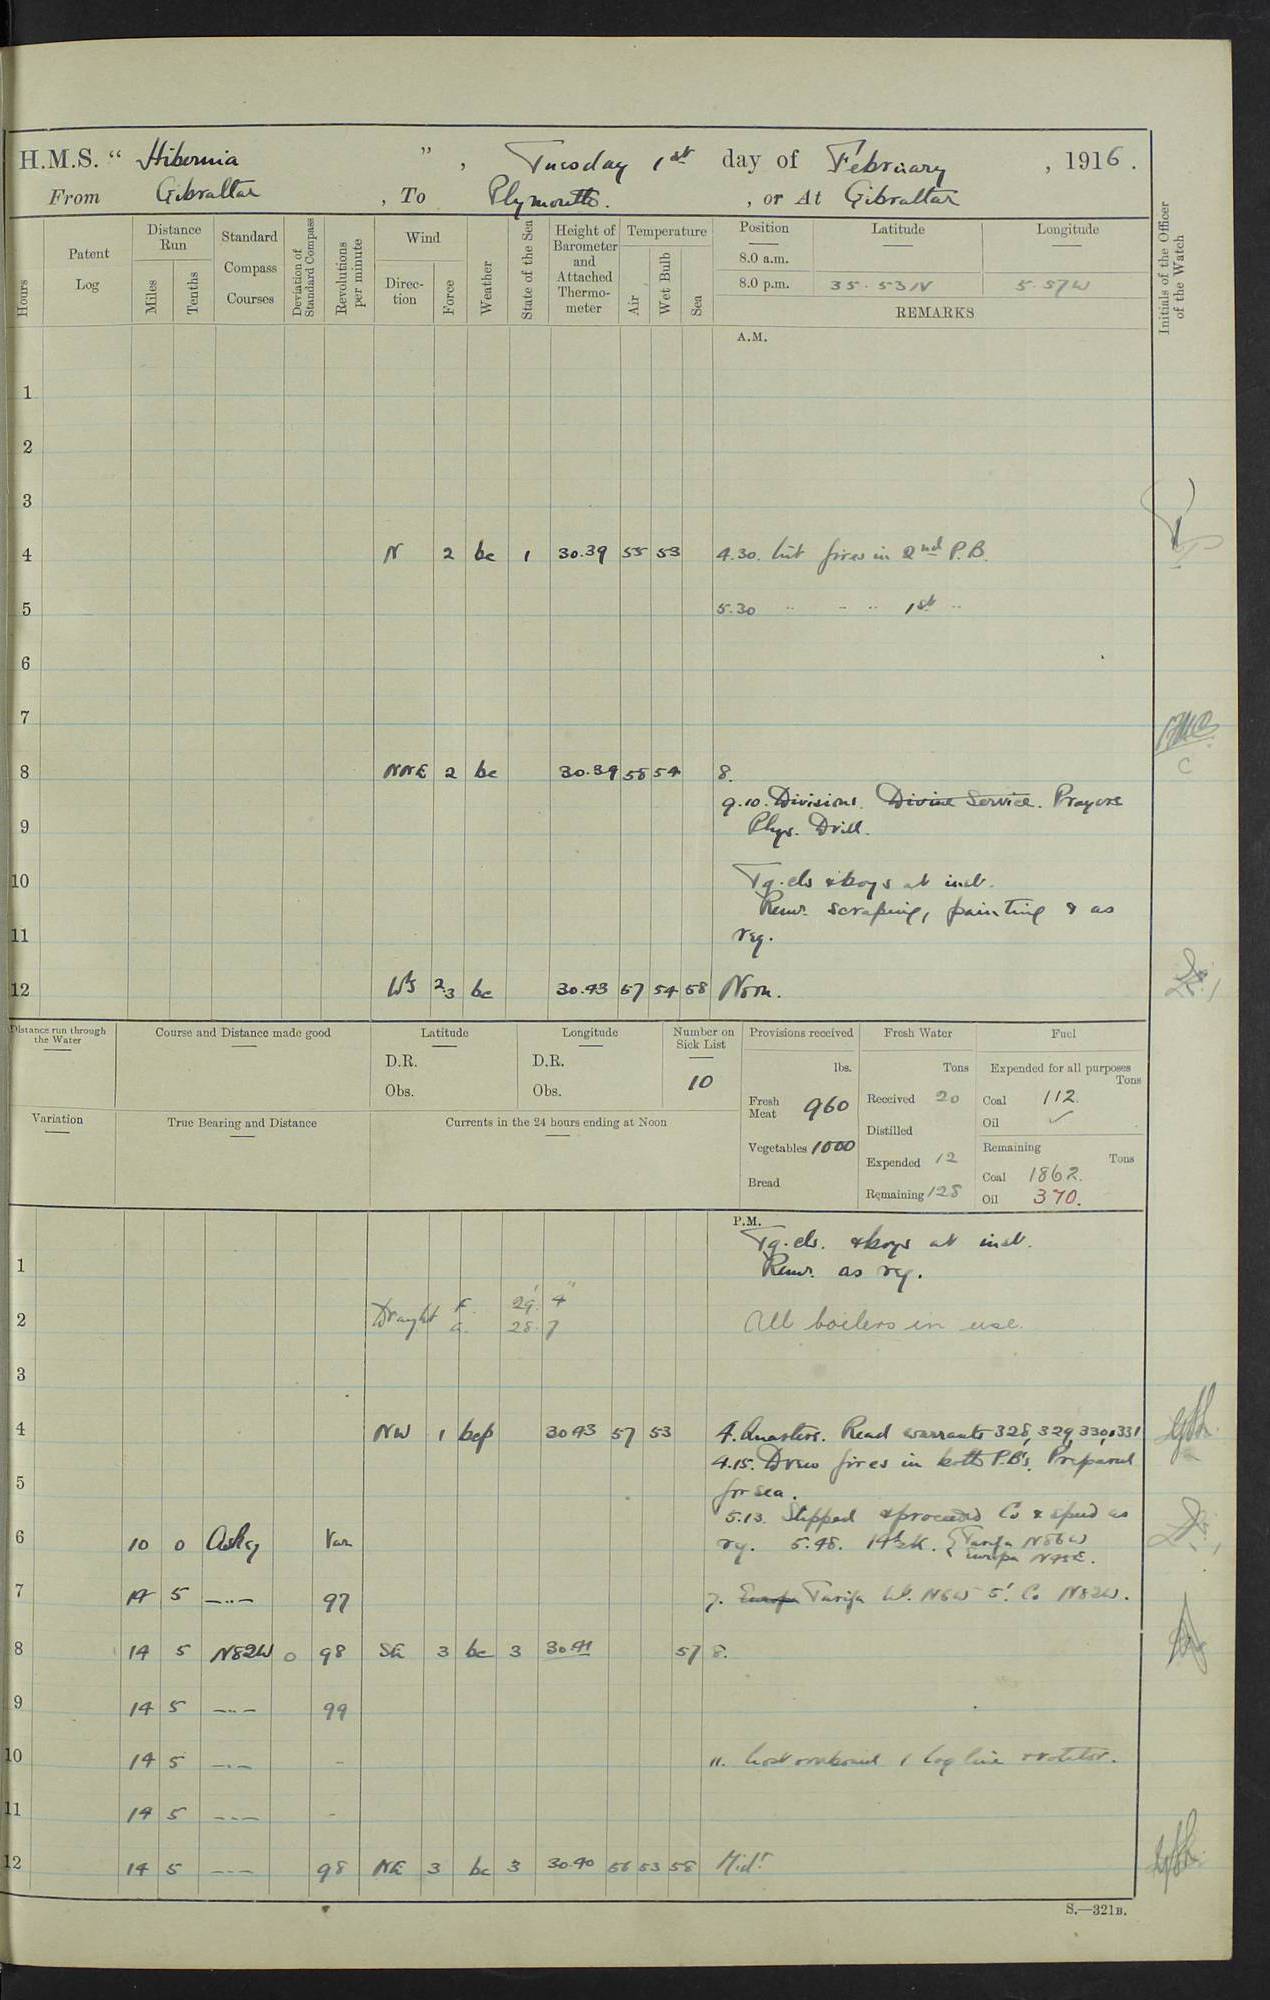 H.M.S. “ Hibernia ” , Tuesday 1st day of February , 1916 .
From Gibraltar , To Plymouth. , or At Gibraltar
Hours
Patent Log
Distance Run
Miles
Tenths
Standard Compass Courses
Deviation of Standard Compass
Revolutions per minute
Wind
Direc-tion
Force
Weather
State of the Sea
Height of Barometer and Attached Thermo-meter
Temperature
Air
Wet Bulb
Sea
Position Latitude Longitude
8.0 a.m.
8.0 p.m. 35. 53 N 5. 57 W
REMARKS
Initials of the Officer of the Watch
A.M.
1
2
3
4 N 2 bc 1 30.39 55 53 4.30. Lit fires in 2nd P.B.
5 5.30 " " " 1st "
6
7
8 NNE 2 bc 30.39 58 54 8.
9.10. Divisions. Divine Service. Prayers
9 Phys. Drill.
10 Tg. cls & boys at inst.
Remr. scraping, painting & as
11 req.
12 W'S 2.3 bc 30.43 57 54 58 Noon.
Distance run through the Water
Course and Distance made good
Latitude
D.R.
Obs.
Longitude
D.R.
Obs.
Number on Sick List
10
Variation
True Bearing and Distance
Currents in the 24 hours ending at Noon
Provisions received
lbs.
Fresh Meat 960
Vegetables 1000
Bread
Fresh Water
Tons
Received 20
Distilled
Expended 12
Remaining 128
Fuel
Expended for all purposes
Tons
Coal 112.
Oil ✓
Remaining
Tons
Coal 1862.
Oil 370.
P.M.
Tg. cls. & boys at inst.
1 Remr. as req.
Draught F. 29' 4"
2 A. 28. 7 All boilers in use.
3
4 NW 1 bcp 30 43 57 53 4. Quarters. Read warrants 328, 329, 330, 331
4.15. Drew fires in both P.B's. Prepared
5 for sea.
5.13. Slipped & proceeded Co & speed as
6 10 0 As req Var req. 5.48. 14½ K. { Tarifa N86W
Europa N43E.
7 14 5 —"— 97 7. Europa Tarifa Lt. N6W 5'. Co N82W.
8 14 5 N82W 0 98 SE 3 bc 3 30 41 57 8.
9 14 5 —"— 99
10 14 5 —"— - 11. Lost overboard 1 log line & rotator.
11 14 5 —"— -
12 14 5 —"— 98 NE 3 bc 3 30.40 56 53 58 Midt
S.—321B.